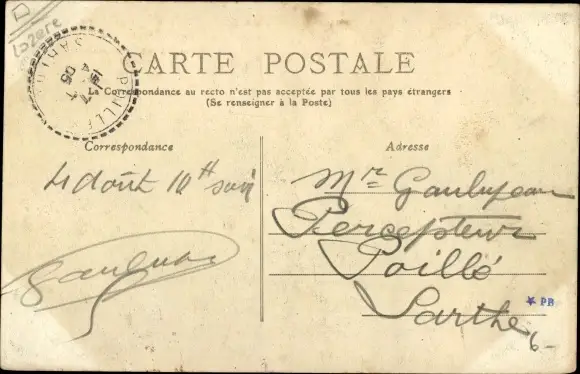 Lozère
CARTE POSTALE
La Correspondance au recto n'est pas acceptée par tous les pays étrangers
(Se renseigner à la Poste)
Correspondance
Adresse
4 août 10H soir
Mr Gaulujean
Percepteur
Poillé
Sarthe
* PB
6-
POILLÉ
SARTHE
05